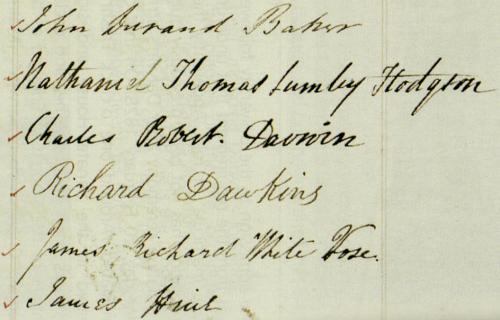 John Durand Baker
Nathaniel Thomas Lumby Hodgson
Charles Robert. Darwin
Richard Dawkins
James Richard White Vose.
James